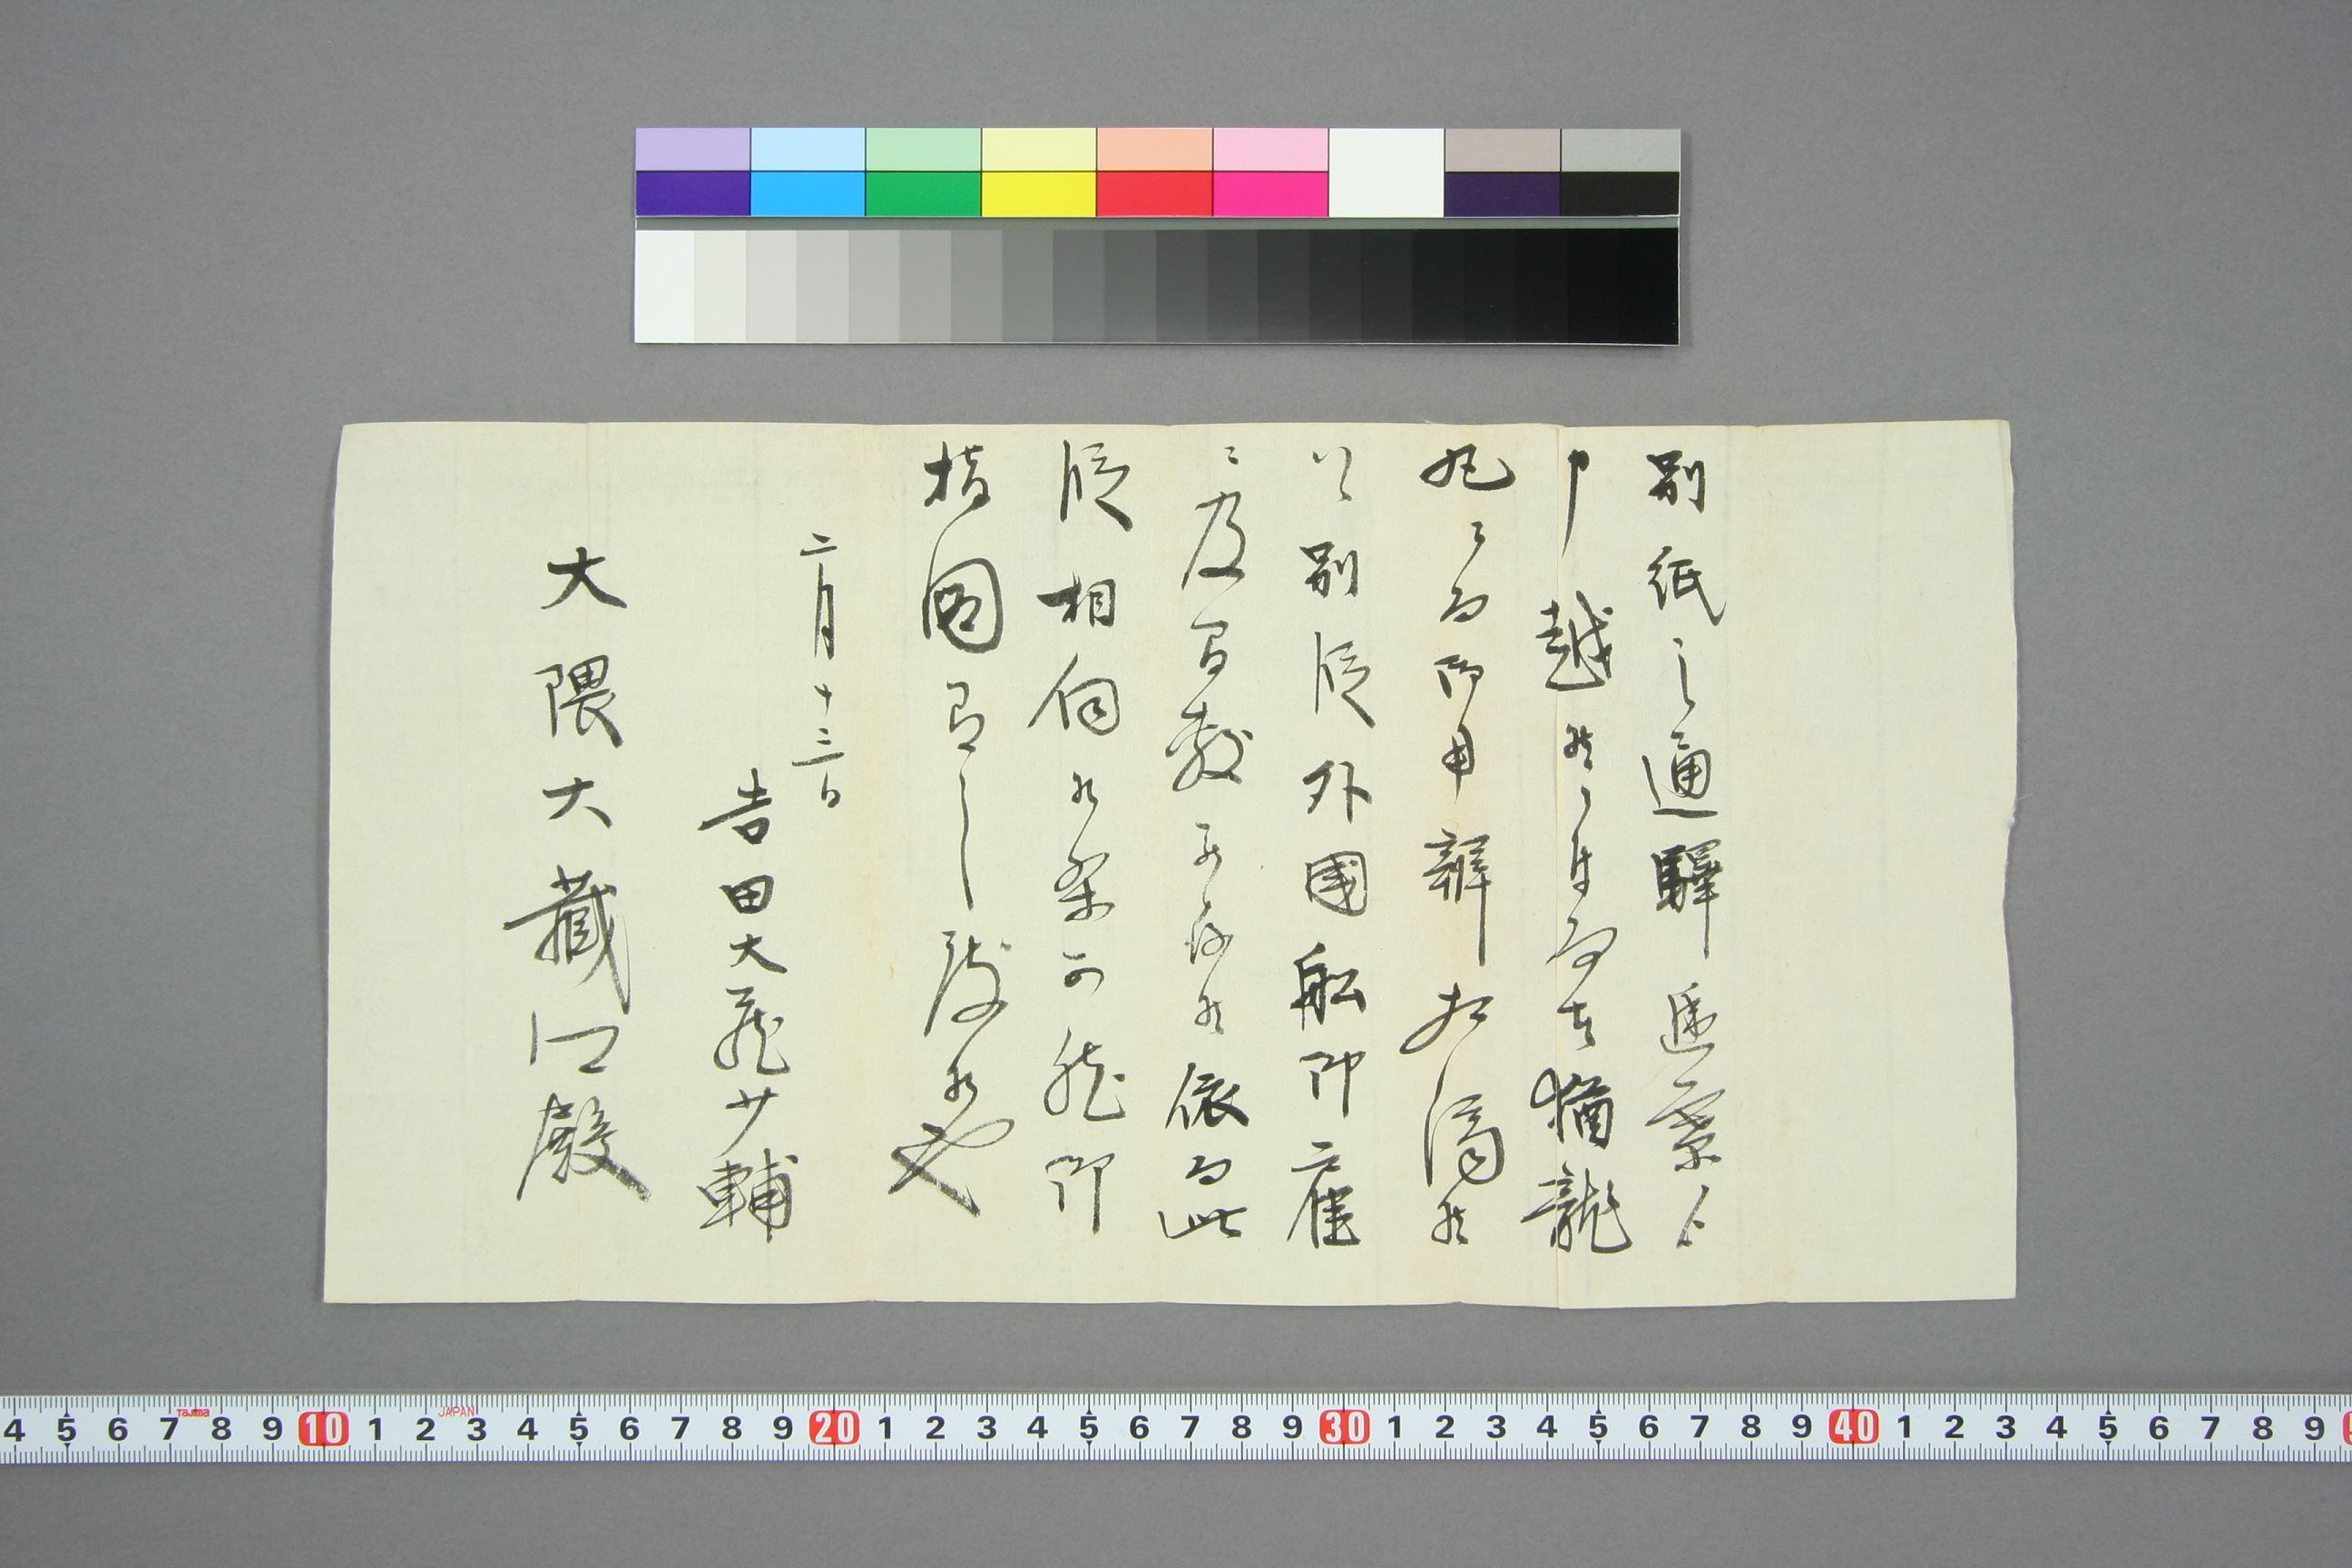 別紙之通驛逓寮ゟ
申越候ニ付而者猶龍
丸ニ而御用辨相済候
ハヽ別段外國船御雇
ニ及間敷被存候依而此
段相伺候条可然御
指圖有之度候也
二月十三日
吉田大蔵少輔
大隈大蔵卿殿
4 5 6 7 8 9 10 1 2 3 4 5 6 7 8 9 20 1 2 3 4 5 6 7 8 9 30 1 2 3 4 5 6 7 8 9 40 1 2 3 4 5 6 7 8 9
Tajima JAPAN